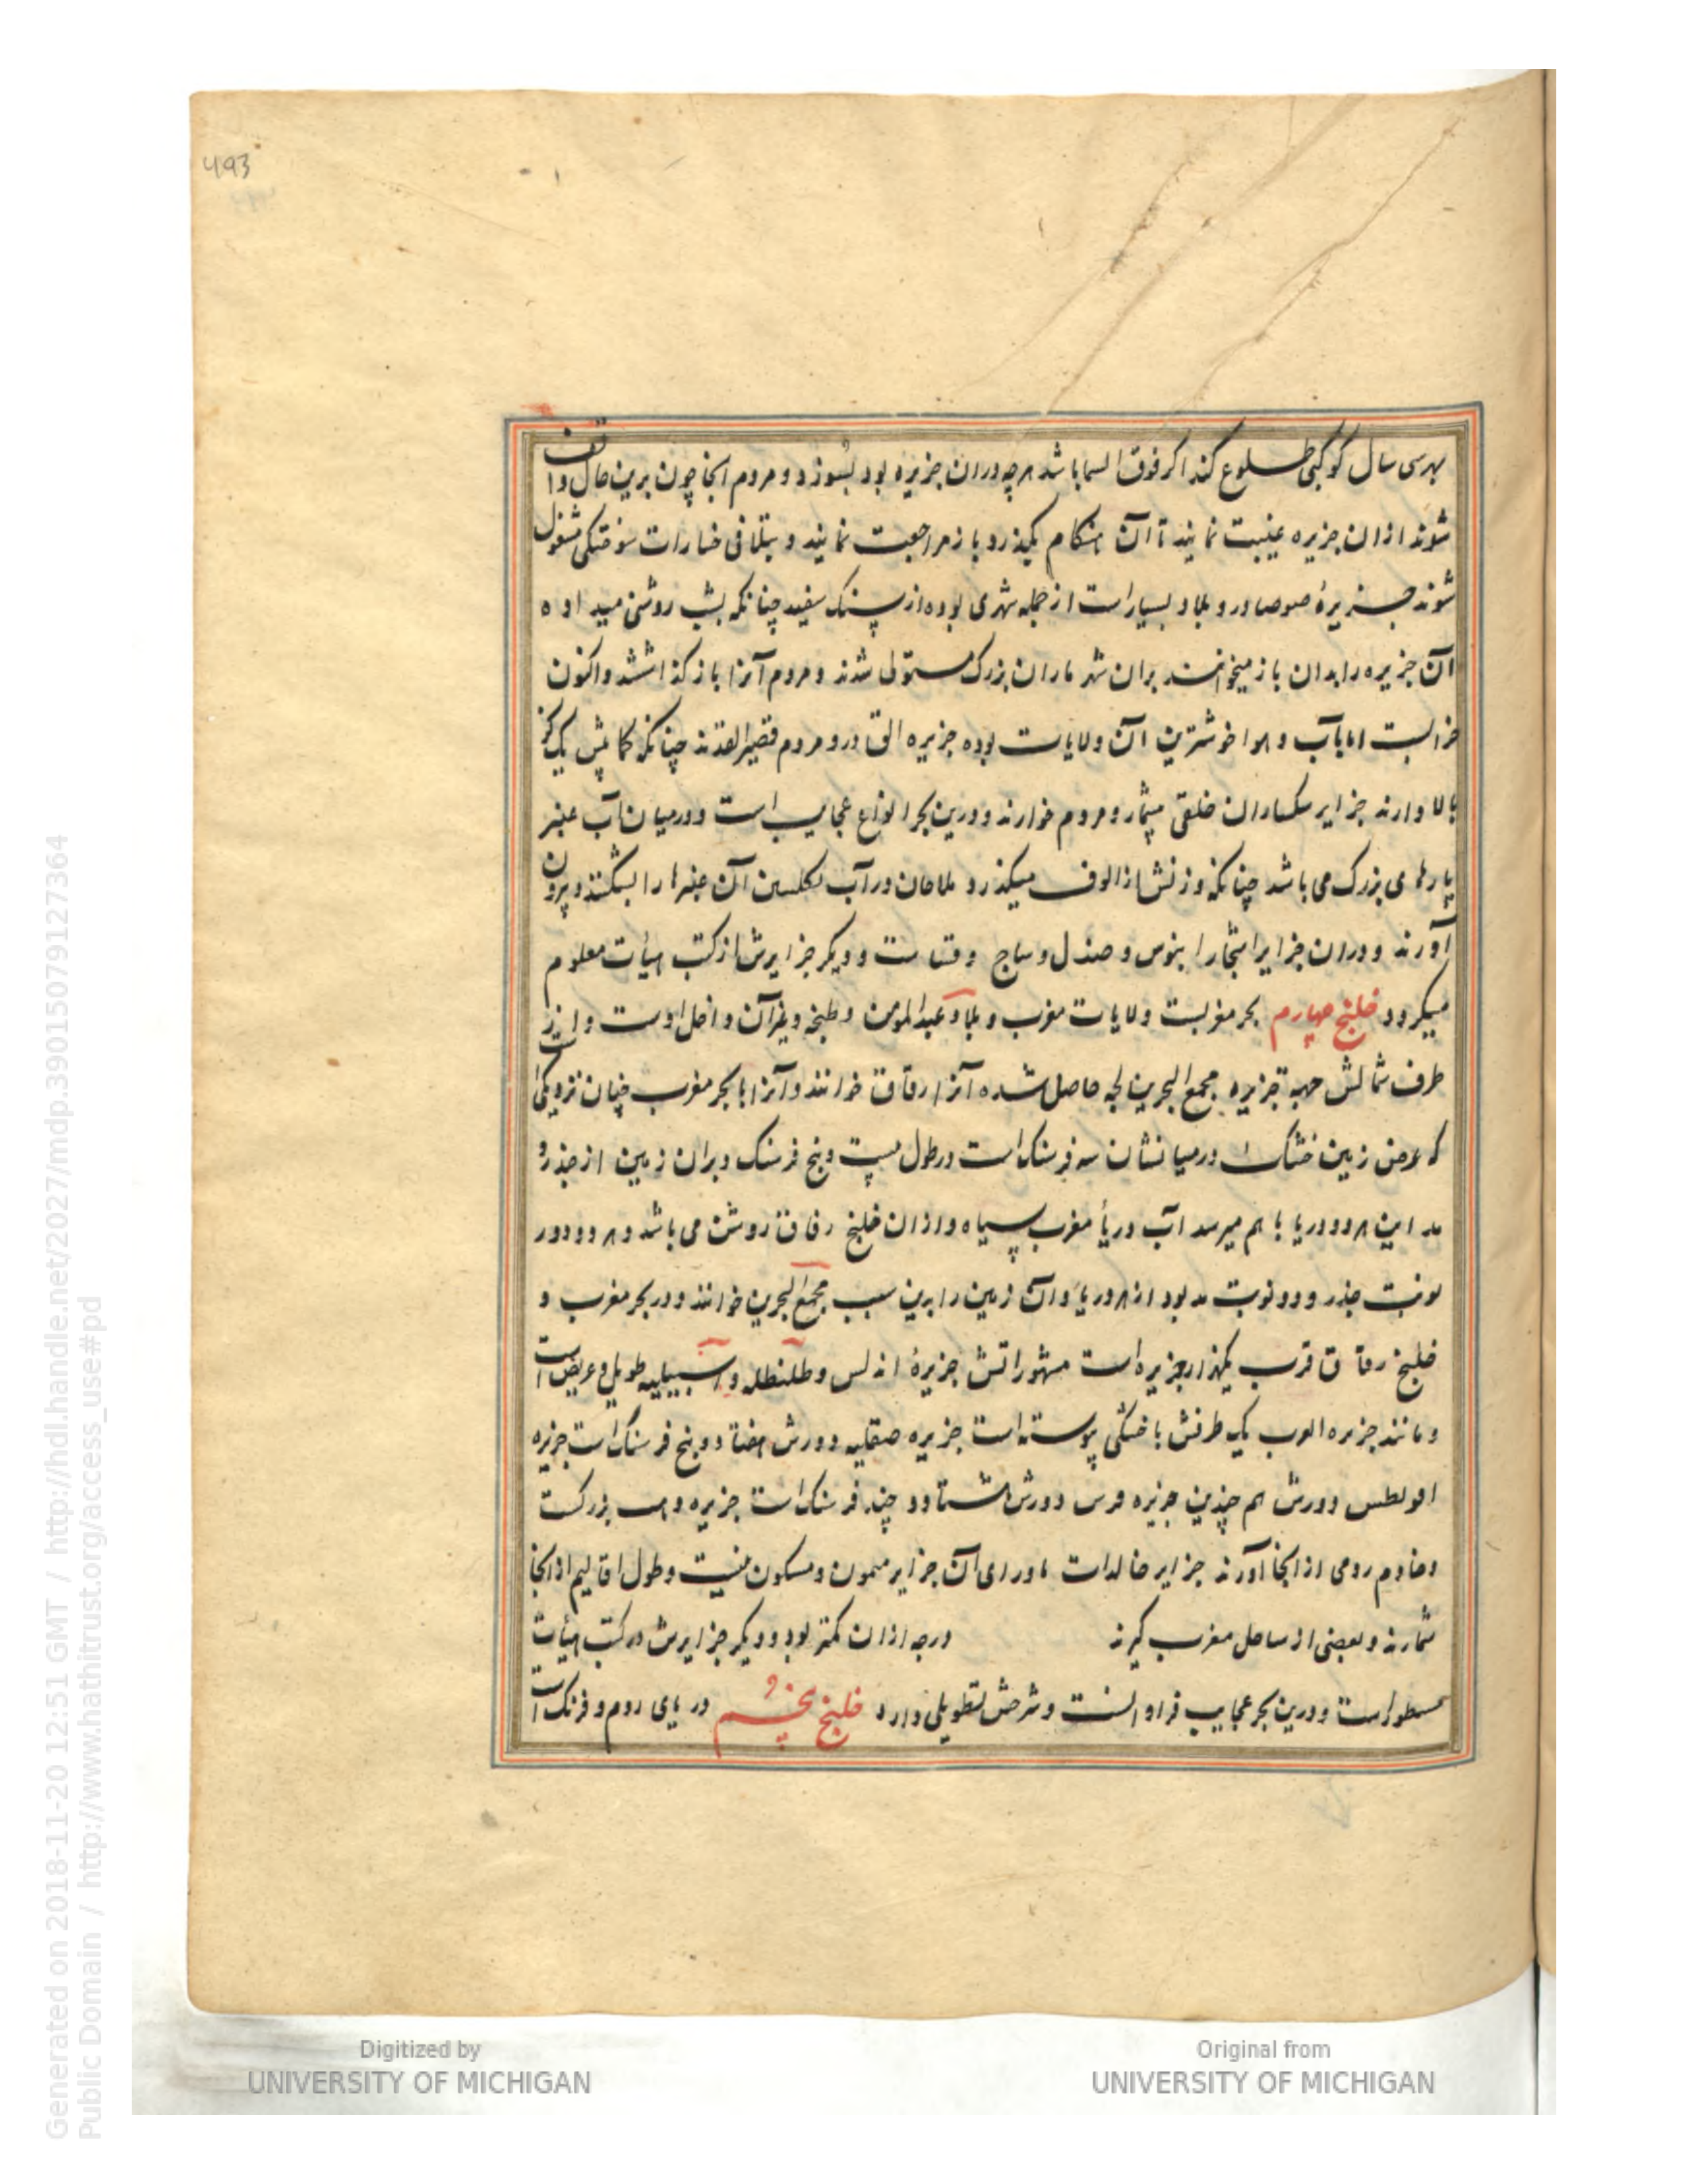 493
بهرسی سال کوکبی طلوع کند اکر فوق السما باشد هرچه دران جزیره بود بسوزد و مردم انجا چون برین حال واقف
شوند ازان جزیره غیبت نمایند تا آن هنکام بکیذرد و باز مراجعت نمایند و بتلافی خسارات سوختکی مشغول
شوند جزیرهٔ صوصا درو بلاد بسیار است از جمله شهری بوده از سنک سفید چنانکه بشب روشنی میداده
آن جزیره را بدان باز میخوانند بران شهر ماران بزرک مستولی شدند و مردم آنرا باز کذاشتند و اکنون
خرابست اما بآب و هوا خوشترین آن ولایات بوده جزیره القا درو مردم قصیر القدند چنانکه کمابیش یک کز
بالا دارند جزایر سکساران خلقی بیشمار و مردم خوارند و درین بحر انواع عجایب است و درمیان آب عنبر
پارهای بزرک می باشد چنانکه وزنش از الوف میکذرد و ملاحان در آب بکلبتین آن عنبرها را بشکنند و بیرون
آورند و دران جزایر اشجار ابنوس و صندل و ساج و قنا ست و دیکر جزایرش از کتب هیأت معلوم
میکردد خلیج چهارم بحر مغربست ولایات مغرب و بلاد عبدالمومن و طنجه و بغرآن داخل اوست و از
طرف شمالش جهة جزیره مجمع البحرین لجه حاصل شده آنرا رقاق خوانند و آنرا با بحر مغرب چنان نزدیکی است
که عرض زمین خشک درمیانشان سه فرسنک است و در طول بیست و پنج فرسنک و بران زمین از جذر و
مد این هر دو دریا با هم میرسد آب دریأ مغرب سیاه و ازان خلیج رقاق روشن می باشد و هر دو دور
نوبت جذر و دو نوبت مد بود از هر دریا و آن زمین را بدین سبب مجمع البحرین خوانند و در بحر مغرب و
خلیج رقاق قرب یکهزار جزیره است مشهوراتش جزیرهٔ اندلس و طلنطله و اسبیلیه طویل و عریض است
و مانند جزیره العرب یک طرفش با خشکی پیوسته است جزیره صقلیه دورش هفتاد و پنج فرسنک است جزیره
افولطس دورش هم چندین جزیره قرس دورش هشتاد و چند فرسنک است جزیره دهب بزرکست
و خادم رومی از انجا آورند جزایر خالدات ماورای آن جزایر میمون و مسکون نیست و طول اقالیم از انجا
شمارند و بعضی از ساحل مغرب کیرند درجه ازان کمتر بود و دیکر جزایرش در کتب هیأت
مسطور است و درین بحر عجایب فراوانست و شرحش تطویلی دارد خلیج پنجم دریای روم و فرنک است
Generated on 2018-11-20 12:51 GMT / http://hdl.handle.net/2027/mdp.39015079127364
Public Domain / http://www.hathitrust.org/access_use#pd
Digitized by
UNIVERSITY OF MICHIGAN
Original from
UNIVERSITY OF MICHIGAN